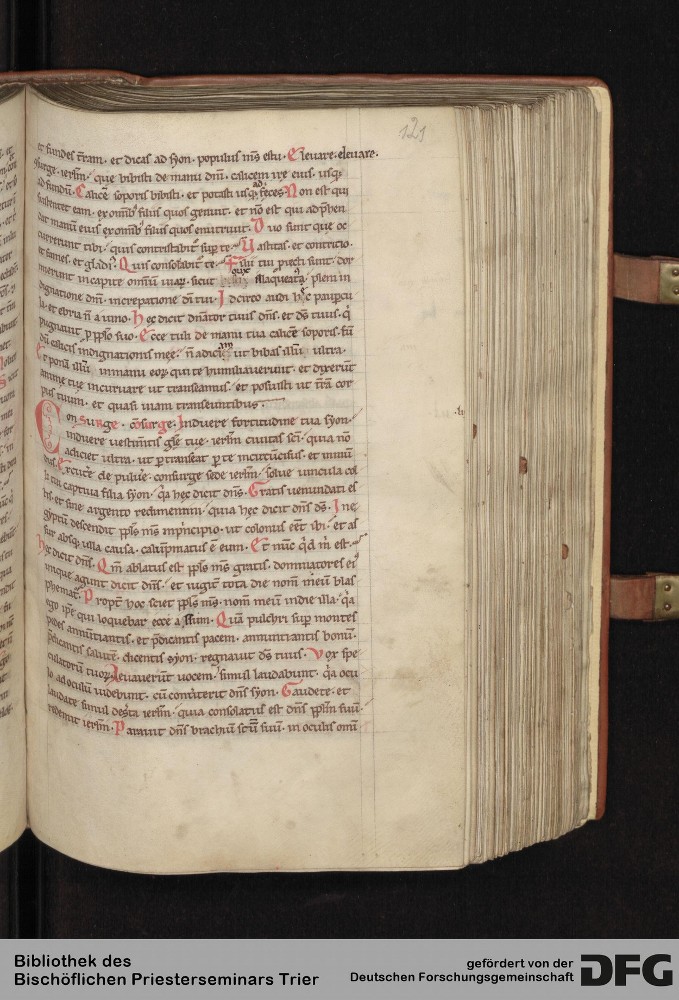 121
et fundes t̄ram · et dicas ad syon · populus m̄s es tu · Elevare · elevare ·
consurge · ierl̄m · que bibisti de manu dn̄i · calicem ire eius · usq;
ad fundū · Calicē soporis bibisti · et potasti usq; ad feces · Non est qui
sustentet eam · ex om̄ib; filiis quos genuit · et nō est qui ad p̄hen
dat manū eius · ex om̄ib; filiis quos enutrivit · Duo sunt que oc
currerunt tibi · quis contristabit̄ sup̄ te · Vastitas · et contritio ·
et fames · et gladi; · Quis consolabit̄ te · Filii tui piecti sunt · dor
mierunt in capite omniū viarꝝ · sicut orix illaqueat; · pleni in
dignatione dn̄i · increpatione dī tui · Idcirco audi h̄ paup̄cu
la · et ebria n̄ a vino · Hec dicit dn̄ator tuus dn̄s · et ds̄ tuus · q̄
pugnavit p̄ pp̄lo suo · Ecce tuli de manu tua calicē soporis · fun
dū calicis indignationis mee · n̄ adicias ut bibas illū ultra ·
Et ponā illū in manu eorꝝ qui te humiliaverunt · et dixerūt
anime tue incurvare ut transeamus · et posuisti ut t̄rā cor
pus tuum · et quasi viam transeuntibus ·
Consurge · cōsurge · Induere fortitudine tua syon ·
induere vestim̄tis gl̄e tue · ierl̄m civitas sc̄i · quia nō
adiciet ultra · ut p̄transeat p̄ te incircūcisus · et inmū
dus · Excutē de pulvē · consurge sede ierl̄m · solve vincula col
li tui captiva filia syon · q̄a hec dicit dn̄s · Gratis venundati es
tis · et sine argento redimemini · quia hec dicit dn̄s ds̄ · In e
gyptū descendit pp̄ls m̄s in p̄ncipio · ut colonus eēt ibi · et as
sur absq; ulla causa · calūpniatus ē eum · Et nūc q̇d m̄ est ·
Hec dicit dn̄s · Qm̄ ablatus est pp̄ls m̄s gratis · dominatores ei;
inique agunt dicit dn̄s · et iugit̄ tota die nom̄ meū blas
phemat̄ · Propt̄ hoc sciet pp̄ls m̄s · nom̄ meū in die illa · q̄a
ego ip̄e qui loquebar ecce assum · Quā pulchri sup̄ montes
pedes annūtiantis · et p̄dicantis pacem · annuntiantis bonū ·
p̄dicantis salutē · dicentis syon · regnavit ds̄ tuus · Vox spe
culatorū tuorꝝ · levaverūt vocem · simul laudabunt · q̄a ocu
lo ad oculū videbunt · cū con̄terit dn̄s syon · Gaudete · et
laudate simul des̄ta ierl̄m · quia consolatus est dn̄s pp̄lm suū ·
redemit ierl̄m · Paravit dn̄s brachiū sc̄m suū · in oculis omī
Bibliothek des
Bischöflichen Priesterseminars Trier
gefördert von der
Deutschen Forschungsgemeinschaft
DFG